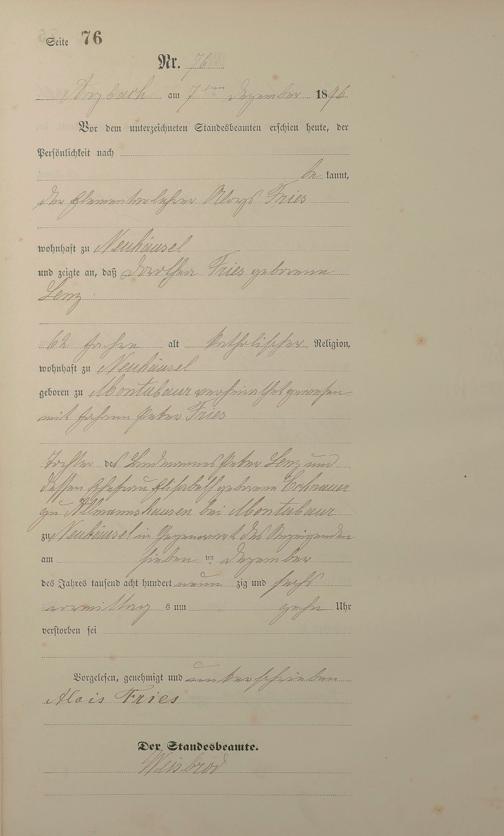 Seite 76
Nr. 76
Arzbach am 7ten Dezember 1896
Vor dem unterzeichneten Standesbeamten erschien heute, der
Persönlichkeit nach
be kannt,
der Elementarlehrer Aloys Fries
wohnhaft zu Neuhäusel
und zeigte an, daß Dorothea Fries geborene
Lenz
62 Jahre alt katholischer Religion,
wohnhaft zu Neuhäusel
geboren zu Montabaur verheirathet gewesen
mit Peter Fries
Tochter des Landmannes Peter Lenz und
dessen Ehefrau Elisabeth geborene
zu bei Montabaur
zu Neuhäusel in Gegenwart des Anzeigenden
am sieben ten Dezember
des Jahres tausend acht hundert neun zig und sechs
vormittag s um zehn Uhr
verstorben sei
Vorgelesen, genehmigt und unterschrieben
Alois Fries
Der Standesbeamte.
Weisbrod